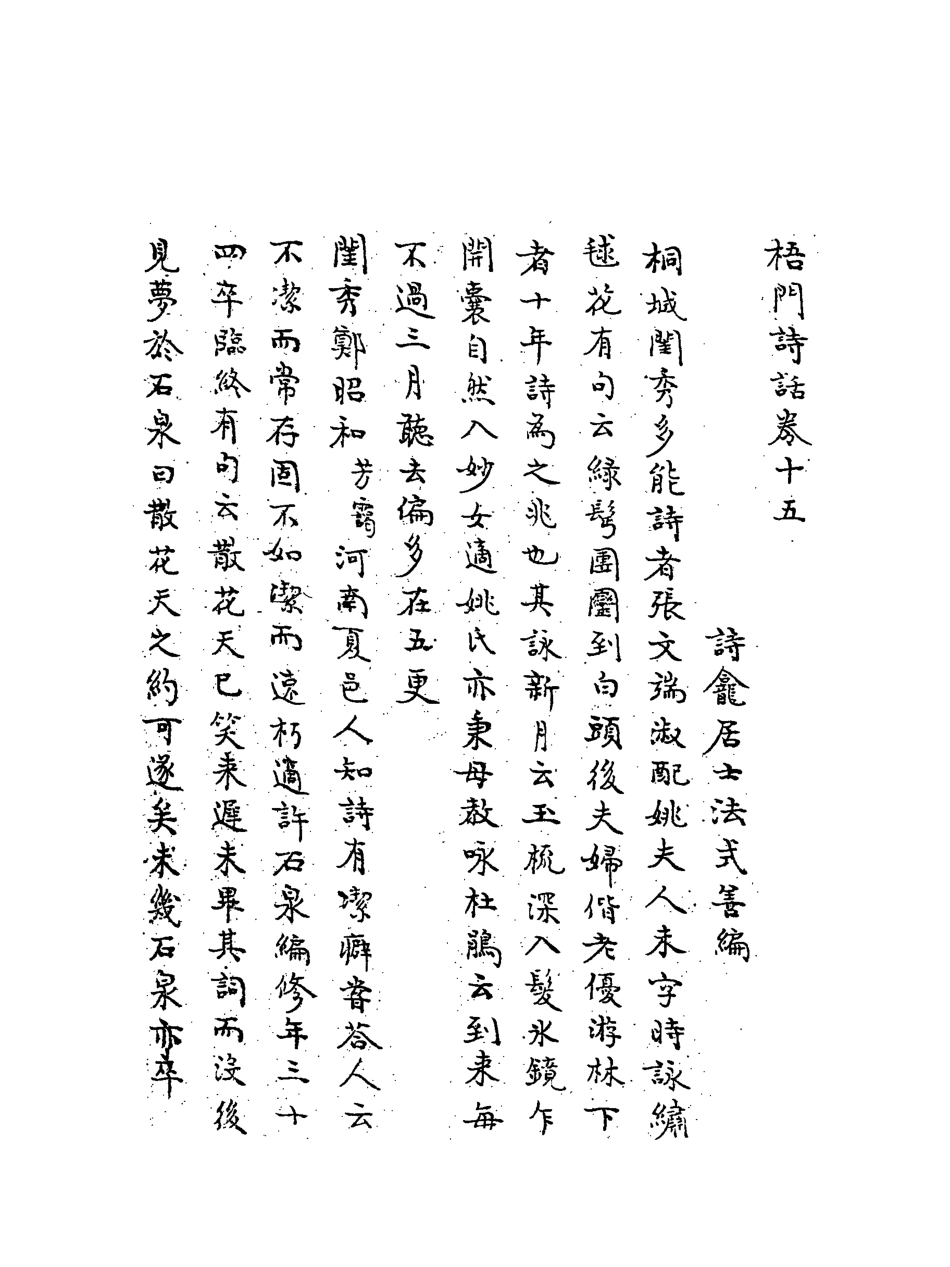 梧門詩話卷十五
詩龕居士法式善編
桐城閨秀多能詩者張文端淑配姚夫人未字時詠繡
毬花有句云綠鬓團圞到白頭後夫婦偕老優游林下
者十年詩為之兆也其詠新月云玉梳深入髮氷鏡乍
開囊自然入妙女適姚氏亦秉母教咏杜鵑云到来每
不過三月聽去偏多在五更
閨秀鄭昭和芳靄河南夏邑人知詩有潔癖嘗荅人云
不潔而常存固不如潔而速朽適許石泉編修年三十
四卒臨終有句云散花天已笑来遲未畢其詞而沒後
見夢於石泉曰散花天之約可遂矣未幾石泉亦卒